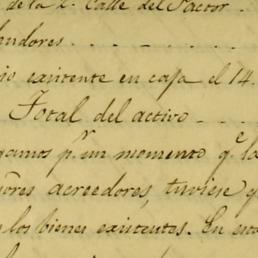 de la 2ª Calle del Factor
dadores
io existente en casa el 14.
Total del activo
gamos pʳ un momento qᵉ lo
ores acreedores, tuviese
los bienes existentes. En est